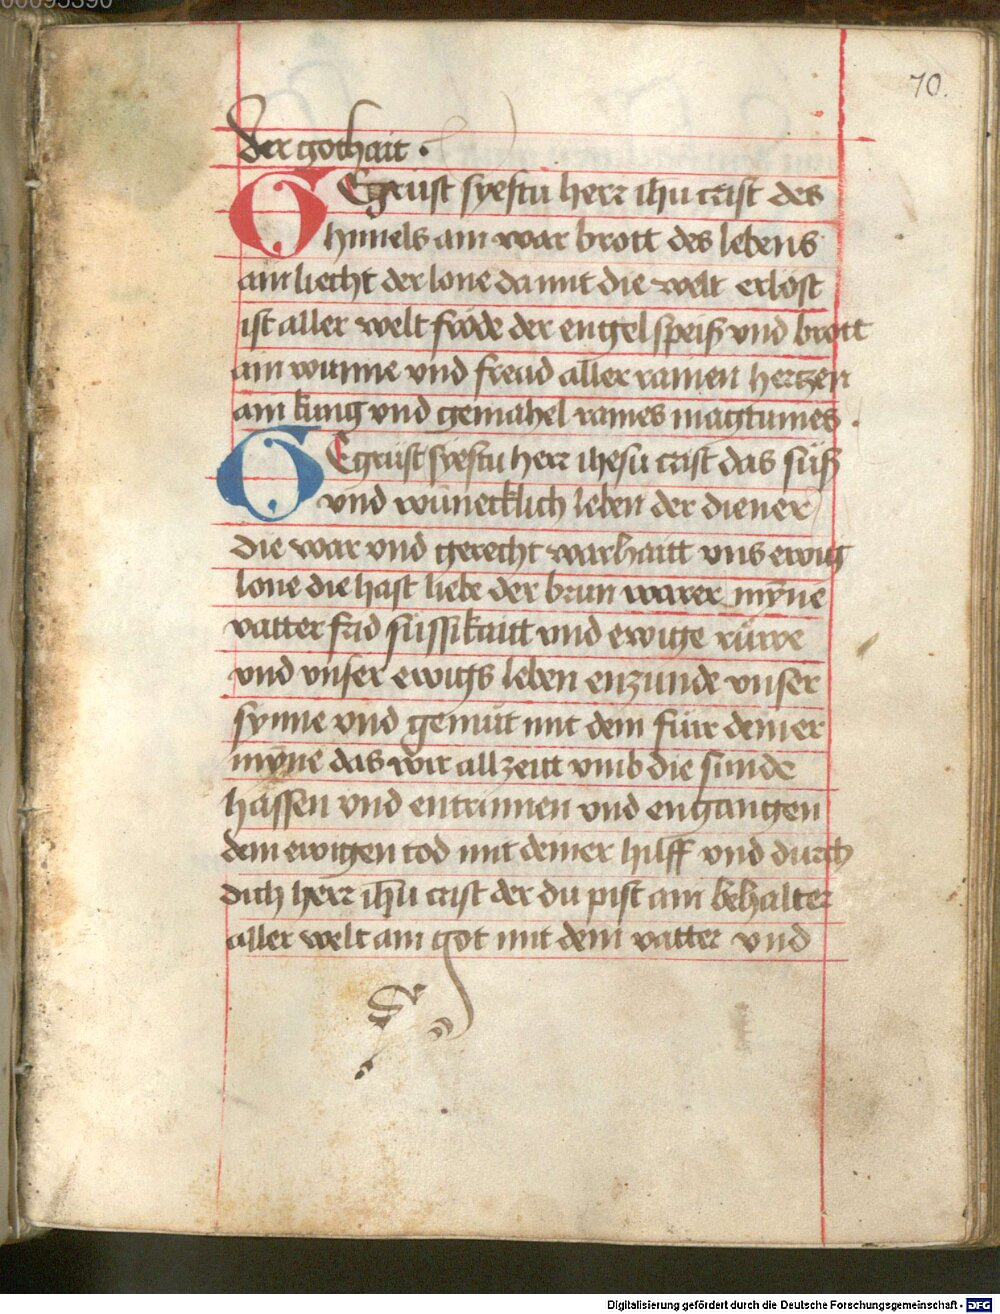 00095390
70.
der gothait ·
GEgrust syestu herr ihu crist des
himels ain war brott des lebens
ain liecht der lone da mit die welt erlost
ist aller welt fröde der engel speiß vnd brott
ain wunne vnd freud aller rainen hertzen
ain kung vnd gemahel raines magtumes ·
GEgrust syestu herr ihesu crist das süß
vnd wünecklich leben der diener
die war vnd gerecht warhaitt vns ewig
lone die hast liebe der brun warer myne
vatter frid süssikaitt vnd ewige rüwe
vnd vnser ewigs leben enzunde vnser
synne vnd gemüt mit dem für deiner
myne das wir allzeitt vmb die sunde
hassen vnd entrinnen vnd engangen
dem ewigen tod mit deiner hilff vnd durch
dich herr ihu crist der du pist ain behalter
aller welt ain got mit dem vatter vnd
Digitalisierung gefördert durch die Deutsche Forschungsgemeinschaft - DFG